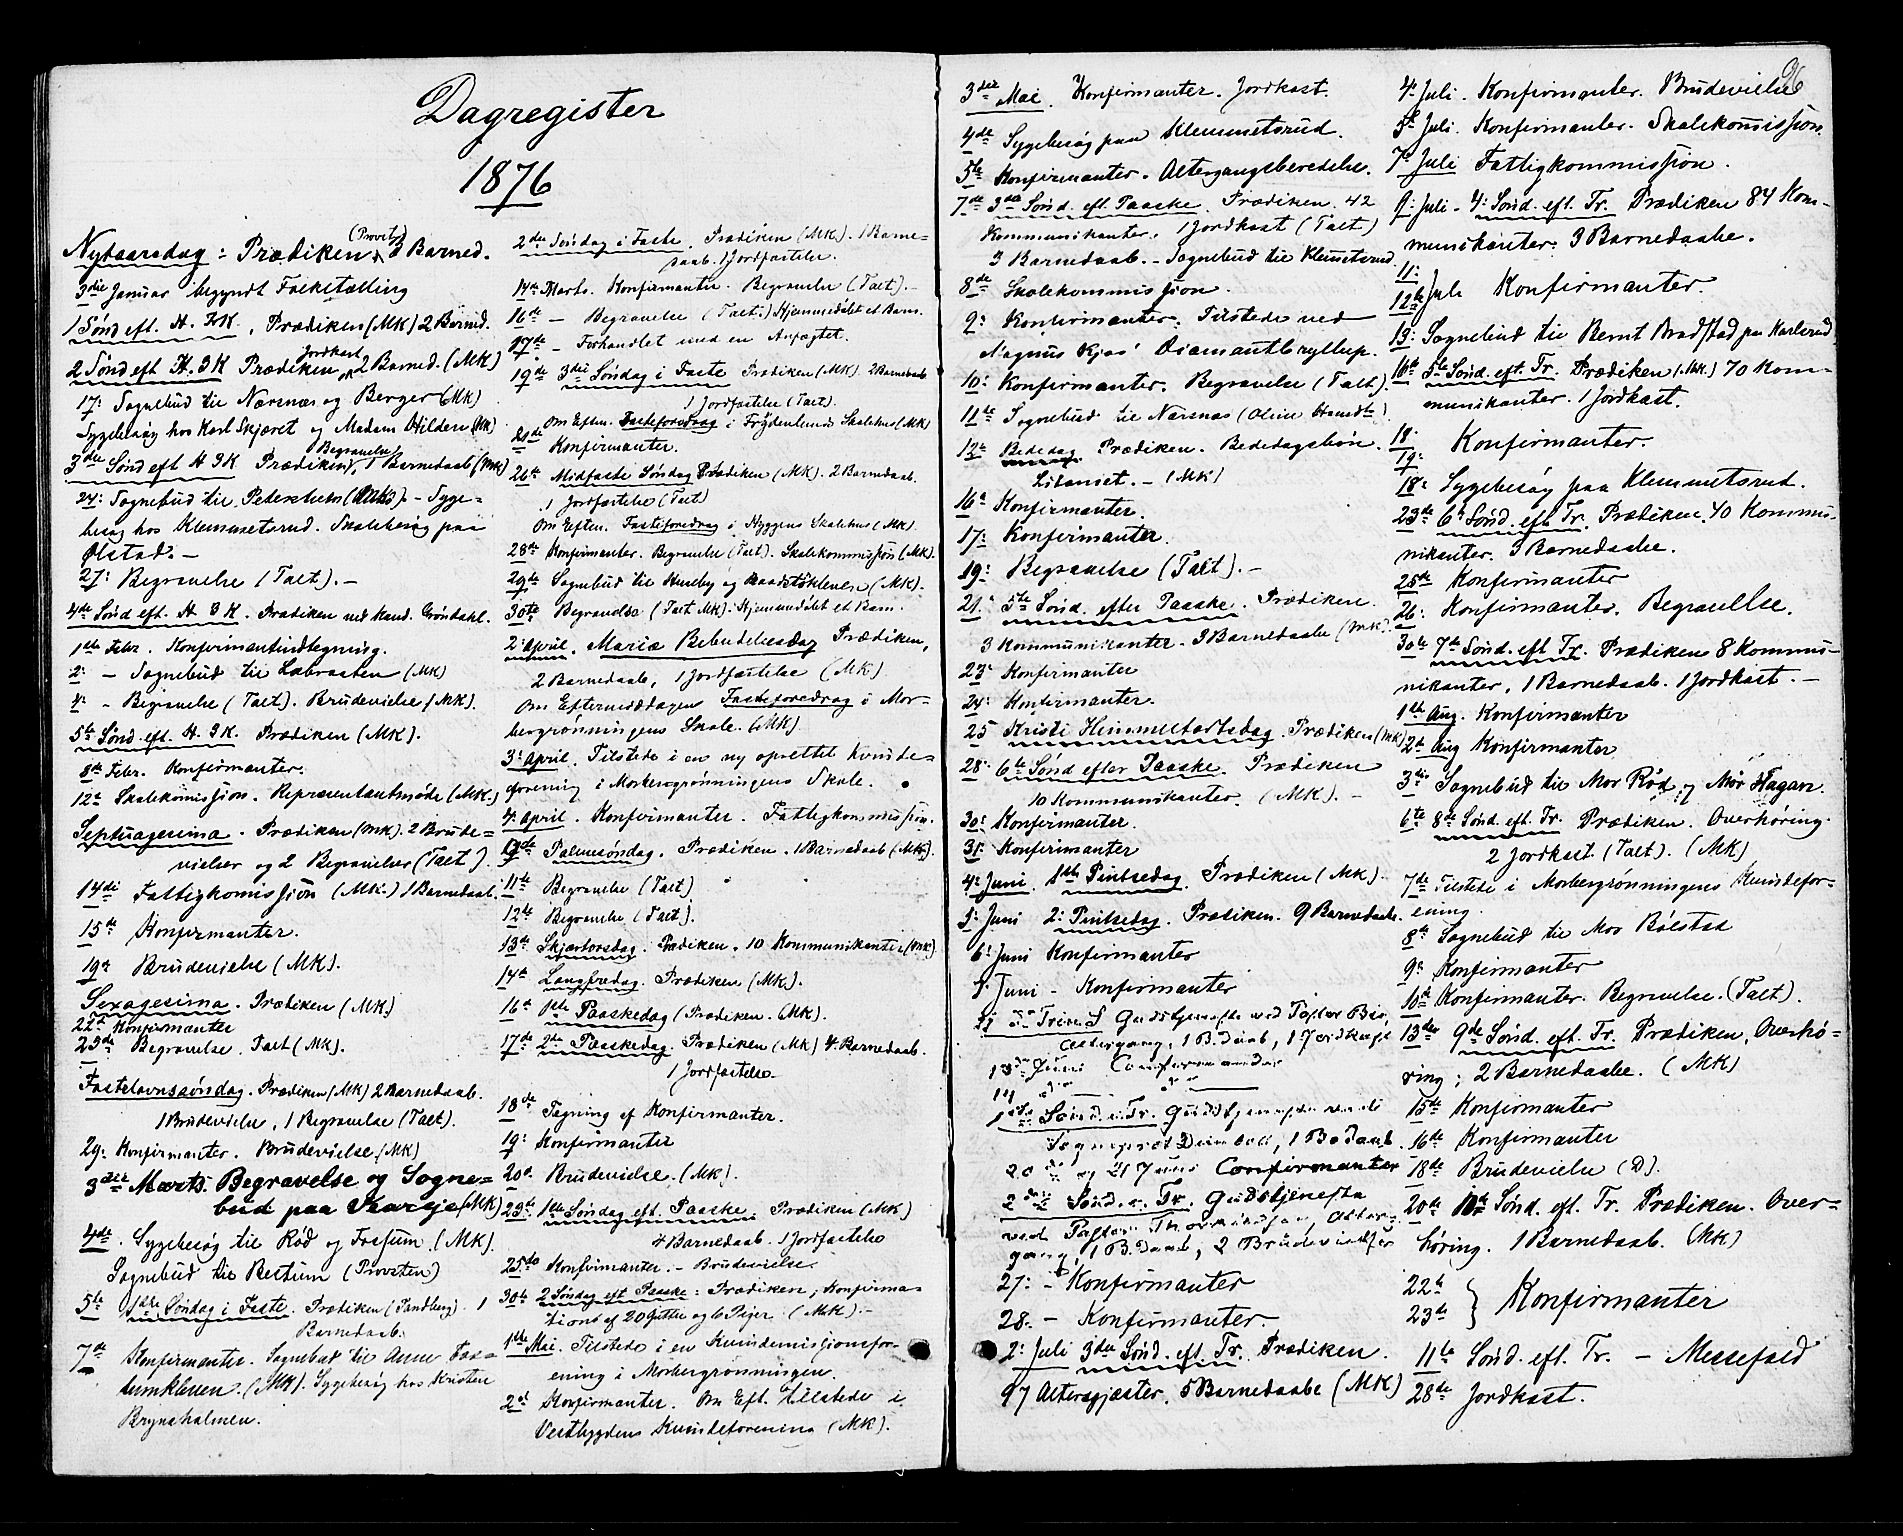 Dagregister
1876
Nytaarsdag: Prædiken (Provst) 3 Barned.
3die Januar begyndt Folketælling
1 Sønd eft. H. 3 K., Prædiken (MK) 2 Barned.
2 Sønd eft H. 3 K Prædiken Jordkast 2 Barned. (MK)
17: Sognebud til Nærsnæs og Berger (MK)
Sygebesøg hos Karl Skjæret og Madam Hilden (MK)
3die Sønd eft H 3 K Prædiken, Begravelse, 1 Barnedaab (MK)
24: Sognebud til - Syge-
besøg hos Klemmetsrud. Skolebesøg paa
Ølstad. -
27: Begravelse (Talt). -
4de Sønd eft. H 3 K. Prædiken ved Kand. Grøndahl.
1ste Febr. Konfirmantindtegning.
2: - Sognebud til (MK)
4: - Begravelse (Talt). Brudevielse (MK).
5te Sønd. eft. H. 3 K. Prædiken (MK).
8de Febr. Konfirmanter.
12te Skolekomission. Repræsentantmøde (MK.)
Septuagesima. Prædiken (MK). 2 Brude-
vielser og 2 Begravelser (Talt).
14de Fattigkomission (MK.) 1 Barnedaab.
15de Konfirmanter.
19de Brudevielse (MK).
Sexagesima. Prædiken (MK)
22de Konfirmanter
23de Begravelse. Talt (MK).
Fastelavnssøndag. Prædiken (MK) 2 Barnedaab.
1 Brudevielse, 1 Begravelse (Talt).
29: Konfirmanter. Brudevielse (MK)
3die Marts. Begravelse og Sogne-
bud paa (MK)
4de. Sygebesøg til Rød og Fossum. (MK).
Sognebud til Bertum (Provsten)
5te 1ste Søndag i Faste. Prædiken (Sandberg). 1
Barnedaab.
7de Konfirmanter. Sognebud til Anne
(MK). Sygebesøg hos Kristen
Brynsholmen.
2den Søndag i Faste. Prædiken (MK). 1 Barne-
daab. 1 Jordfæstelse.
14de Marts. Konfirmanter. Begravelse (Talt). -
16de - Begravelse (Talt.) Hjemmedøbt et Barn.
17de - Forhandlet med en
19de 3die Søndag i Faste Prædiken (MK). 2 Barnedaab
1 Jordfæstelse (Talt).
Om Eften. Fasteforedrag i Frydenlunds Skolehus (MK)
21de Konfirmanter.
26te Midfaste Søndag Prædiken (MK). 2 Barnedaab.
1 Jordfæstelse (Talt)
Om Eften. Fasteforedrag i Hyggens Skolehus (MK).
28de Konfirmanter. Begravelse (Talt). Skolekommission (MK).
29de Sognebud til Huseby og (MK).
30te Begravelse (Talt MK). Hjemmedøbt et Barn.
2: April. Mariæ Bebudelsesdag Prædiken,
2 Barnedaab, 1 Jordfæstelse (MK).
Om Eftermiddagen Fasteforedrag i Mor-
bergrønningens Skole. (MK)
3: April. Tilstede i en ny oprettet Kvinde-
forening i Morbergrønningens Skole.
4: April. Konfirmanter. Fattigkommission.
9de Palmesøndag. Prædiken. 1 Barnedaab (MK).
11te Begravelse (Talt)
12te Begravelse (Talt).
13de Skjærtorsdag. Prædiken. 10 Kommunikanter (MK)
14de Langfredag. Prædiken (MK).
16de 1ste Paaskedag (Prædiken. (MK).
17de 2den Paaskedag. Prædiken (MK) 4 Barnedaab.
1 Jordfæstelse
18de Tegning af Konfirmanter.
19: Konfirmanter
20de Brudevielse. (MK).
23de 1ste Søndag eft. Paaske. Prædiken (MK)
4 Barnedaab. 1 Jordfæstelse
25de Konfirmanter. - Brudevielse.
30te 2 Søndag eft Paaske: Prædiken, Konfirma-
tion af 20 Gutter og 6 Piger. (MK). -
1ste Mai. Tilstede i en Kvindemissionsfor-
ening i Morbergrønningen.
2de Konfirmanter. Om Eft. tilstede i
Vestbygdens Kvindeforening (MK).
3die Mai. Konfirmanter. Jordkast.
4de Sygebesøg paa Klemmetsrud.
5te Konfirmanter. Altergangsberedelse.
7de 3die Sønd. eft. Paaske. Prædiken. 42
Kommunikanter. 1 Jordkast (Talt)
3 Barnedaab. - Sognebud til Klemetsrud
8de Skolekommission.
9: Konfirmanter. Tilstede ved
Magnus Kjos' Diamantbryllup.
10: Konfirmanter. Begravelse (Talt).
11te Sognebud til Nærsnæs (Oline
12te Bededag. Prædiken. Bededagsbøn.
Litaniet. - (MK)
16de Konfirmanter.
17: Konfirmanter.
19: Begravelse (Talt). -
21: 5te Sønd. efter Paaske. Prædiken.
3 Kommunikanter. 3 Barnedaabe (MK).
23: Konfirmanter
24: Konfirmanter.
25 Kristi Himmelfartsdag. Prædiken (MK)
28: 6te Sønd efter Paaske. Prædiken
10 Kommunikanter. (MK). -
30: Konfirmanter.
31: Konfirmanter
4: Juni. 1ste Pintsedag. Prædiken (MK).
5: Juni 2: Pintsedag. Prædiken. 9 Barnedaabe.
6: Juni Konfirmanter
7: Juni - Konfirmanter
11 Trinit. Gudstjeneste ved Pastor
Altergang, 1 B. Daab, 1 Jordkast
13de Juni Confirmander
14 do do
1ste Sønd. e. Tr. Gudstjeneste ved
Sogneprest, 1 B. Daab.
20de og 21 Juni Confirmanter
2den Sønd. e. Tr. Gudstjeneste
ved Pastor Alter-
gang, 1 B. Daab, 2 Brudevielser
27: - Konfirmanter
28. - Konfirmanter. -
2: Juli 3die Sønd. eft. Tr. Prædiken.
97 Altersgjæster. 5 Barnedaabe (MK)
96
4: Juli. Konfirmanter. Brudevielse
5te Juli. Konfirmanter. Skolekomission.
7de Juli Fattigkommission.
9: Juli - 4: Sønd. eft. Tr. Prædiken 84 Kom-
munikanter. 3 Barnedaabe.
11:
12te Juli Konfirmanter.
13: Sognebud til Bernt Bradstad paa Karlsrud
16de 5te Sønd. eft. Tr. Prædiken (MK) 70 Kom-
munikanter. 1 Jordkast.
18.
19: Konfirmanter.
18: Sygebesøg paa Klemmetsrud.
23de 6te Sønd. eft Tr. Prædiken. 40 Kommu-
nikanter. 3 Barnedaabe.
25de Konfirmanter
26: Konfirmanter. Begravelse.
30te 7de Sønd. eft Tr. Prædiken 8 Kommu-
nikanter. 1 Barnedaab. 1 Jordkast. -
1ste Aug. Konfirmanter
2de Aug Konfirmanter
3die Sognebud til Mor Rød og Mor Hagan.
6te 8de Sønd. eft. Tr. Prædiken. Overhøring.
2 Jordkast. (Talt). (MK)
7de Tilstede i Morbergrønningens Kvindefor-
ening.
8de Sognebud til Mor Bølstad
9: Konfirmanter
10de Konfirmanter. Begravelse. (Talt).
13de 9de Sønd. eft. Tr. Prædiken, Overhø-
ring; 2 Barnedaabe. (MK)
15de Konfirmanter
16de Konfirmanter
18de Brudevielse (D).
20de 10de Sønd. eft. Tr. Prædiken. Over-
høring. 1 Barnedaab. (MK)
22de
23de } Konfirmanter
11te Sønd. eft. Tr. - Messefald
28de Jordkast.